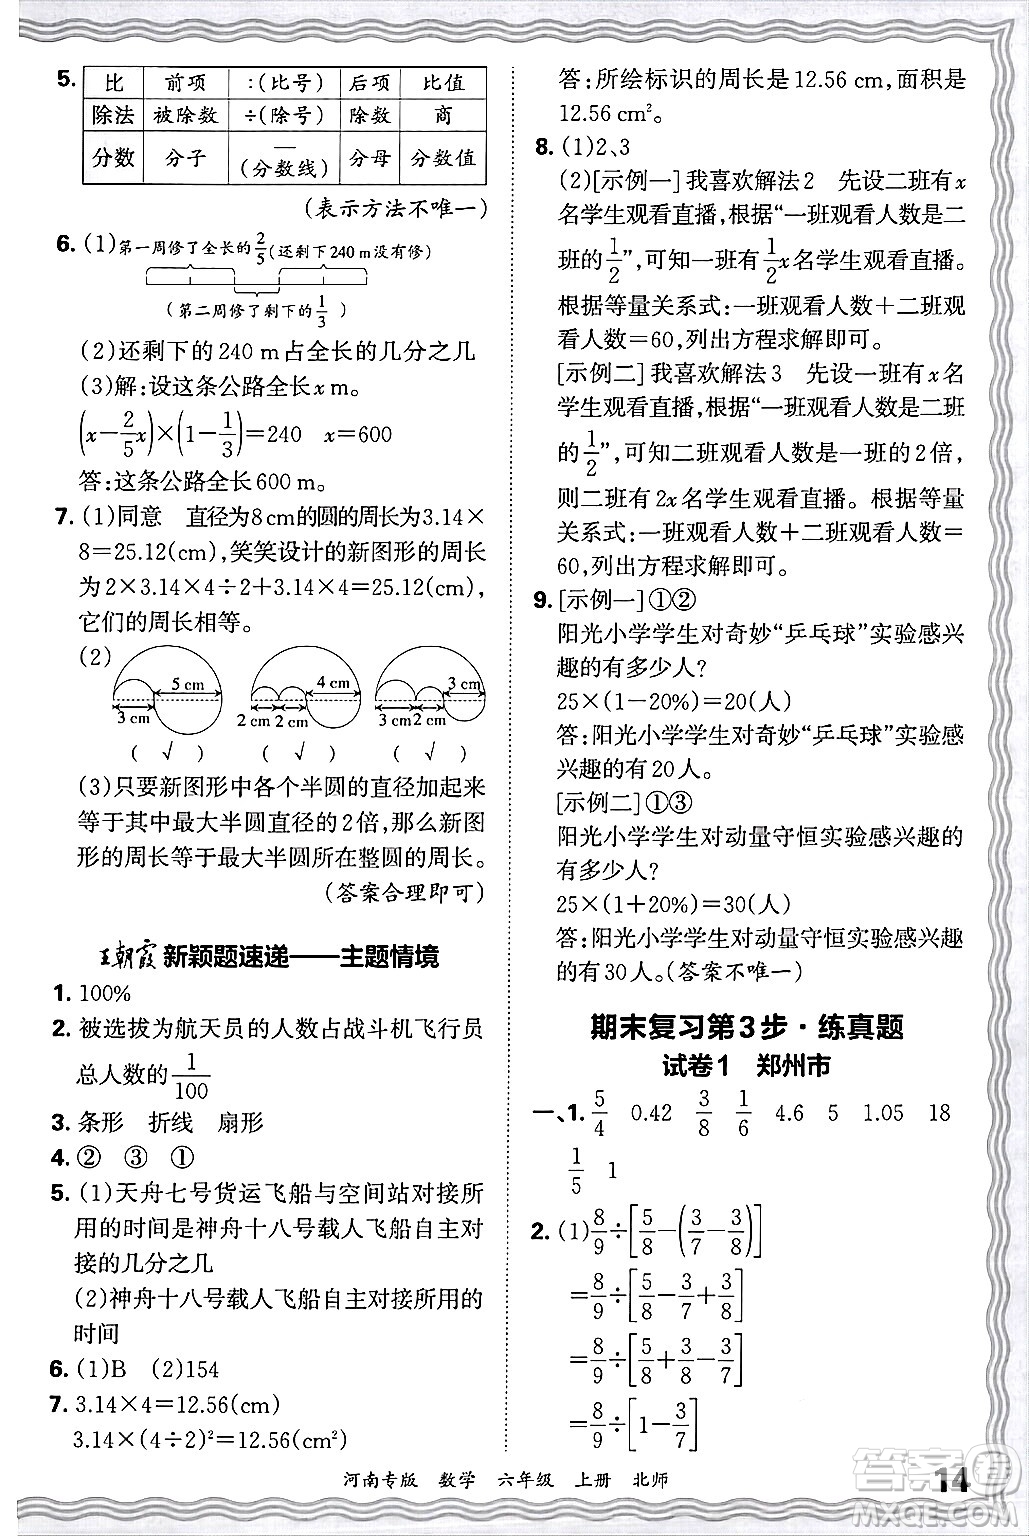 5. 比 前项 :(比号) 后项 比值
除法 被除数 ÷(除号) 除数 商
分数 分子 —(分数线) 分母 分数值
(表示方法不唯一)
6. (1)第一周修了全长的2/5(还剩下240 m没有修)
(第二周修了剩下的1/3)
(2)还剩下的240 m占全长的几分之几
(3)解:设这条公路全长x m。
(x-2/5x)×(1-1/3)=240 x=600
答:这条公路全长600 m。
7. (1)同意 直径为8 cm的圆的周长为3.14×
8=25.12(cm),笑笑设计的新图形的周长
为2×3.14×4÷2+3.14×4=25.12(cm),
它们的周长相等。
(2)
5 cm 4 cm 3 cm
3 cm 2 cm 2 cm 3 cm 2 cm
( √ ) ( √ ) ( √ )
(3)只要新图形中各个半圆的直径加起来
等于其中最大半圆直径的2倍,那么新图
形的周长等于最大半圆所在整圆的周长。
(答案合理即可)
王朝霞 新颖题速递——主题情境
1. 100%
2. 被选拔为航天员的人数占战斗机飞行员
总人数的1/100
3. 条形 折线 扇形
4. ② ③ ①
5. (1)天舟七号货运飞船与空间站对接所
用的时间是神舟十八号载人飞船自主对
接的几分之几
(2)神舟十八号载人飞船自主对接所用的
时间
6. (1)B (2)154
7. 3.14×4=12.56(cm)
3.14×(4÷2)²=12.56(cm²)
答:所绘标识的周长是12.56 cm,面积是
12.56 cm²。
8. (1)2、3
(2)[示例一]我喜欢解法2 先设二班有x
名学生观看直播,根据“一班观看人数是二
班的1/2”,可知一班有1/2x名学生观看直播。
根据等量关系式:一班观看人数+二班观
看人数=60,列出方程求解即可。
[示例二]我喜欢解法3 先设一班有x名
学生观看直播,根据“一班观看人数是二班
的1/2”,可知二班观看人数是一班的2倍,
则二班有2x名学生观看直播。根据等量
关系式:一班观看人数+二班观看人数=
60,列出方程求解即可。
9. [示例一]①②
阳光小学学生对奇妙“乒乓球”实验感兴
趣的有多少人?
25×(1-20%)=20(人)
答:阳光小学学生对奇妙“乒乓球”实验感
兴趣的有20人。
[示例二]①③
阳光小学学生对动量守恒实验感兴趣的
有多少人?
25×(1+20%)=30(人)
答:阳光小学学生对动量守恒实验感兴趣
的有30人。(答案不唯一)
期末复习第3步·练真题
试卷1 郑州市
一、1. 5/4 0.42 3/8 1/6 4.6 5 1.05 18
1/5 1
2. (1)8/9÷[5/8-(3/7-3/8)]
=8/9÷[5/8-3/7+3/8]
=8/9÷[5/8+3/8-3/7]
=8/9÷[1-3/7]
河南专版 数学 六年级 上册 北师
14